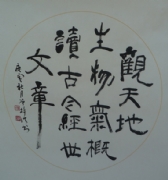 觀天地
生物氣概
讀古今經世
文章